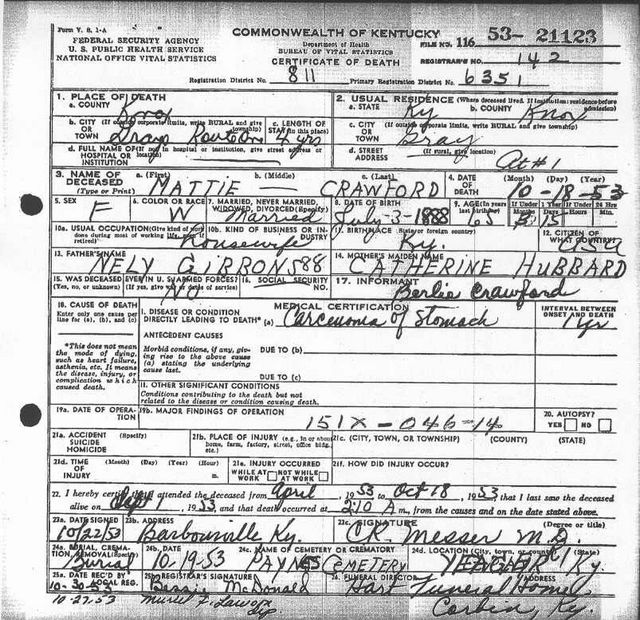 Form V. S. 1-A
FEDERAL SECURITY AGENCY
U. S. PUBLIC HEALTH SERVICE
NATIONAL OFFICE VITAL STATISTICS
COMMONWEALTH OF KENTUCKY
Department of Health
BUREAU OF VITAL STATISTICS
CERTIFICATE OF DEATH
FILE NO. 116 53- 21123
REGISTRAR'S NO. 142
Registration District No. 811 Primary Registration District No. 6351
1. PLACE OF DEATH
a. COUNTY Knox
b. CITY (If outside corporate limits, write RURAL and give township) OR TOWN Gray
c. LENGTH OF STAY (in this place)
d. FULL NAME OF (If not in hospital or institution, give street address or location) HOSPITAL OR INSTITUTION
2. USUAL RESIDENCE (Where deceased lived. If institution: residence before admission)
a. STATE Ky b. COUNTY Knox
c. CITY (If outside corporate limits, write RURAL and give township) OR TOWN Gray
d. STREET ADDRESS (If rural, give location) Rt #1
3. NAME OF DECEASED (Type or Print)
a. (First) MATTIE b. (Middle) c. (Last) CRAWFORD
4. DATE OF DEATH (Month) (Day) (Year) 10-18-53
5. SEX F
6. COLOR OR RACE W
7. MARRIED, NEVER MARRIED, WIDOWED, DIVORCED (Specify) Married
8. DATE OF BIRTH July-3-1888
9. AGE (In years last birthday) 65 If Under 1 Year If Under 24 Hrs 3 15
10a. USUAL OCCUPATION (Give kind of work done during most of working life, even if retired) Housewife
10b. KIND OF BUSINESS OR INDUSTRY
11. BIRTHPLACE (State or foreign country) Ky.
12. CITIZEN OF WHAT COUNTRY?
13. FATHER'S NAME NELY GIBBONS 88
14. MOTHER'S MAIDEN NAME CATHERINE HUBBARD
15. WAS DECEASED EVER IN U. S. ARMED FORCES? (Yes, no, or unknown) (If yes, give war or dates of service) NO
16. SOCIAL SECURITY NO.
17. INFORMANT Berlie Crawford
18. CAUSE OF DEATH
Enter only one cause per line for (a), (b), and (c)
*This does not mean the mode of dying, such as heart failure, asthenia, etc. It means the disease, injury, or complication which caused death.
MEDICAL CERTIFICATION
I. DISEASE OR CONDITION DIRECTLY LEADING TO DEATH* (a) Carcenoma of Stomach
INTERVAL BETWEEN ONSET AND DEATH 1 yr
ANTECEDENT CAUSES
Morbid conditions, if any, giving rise to the above cause (a) stating the underlying cause last.
DUE TO (b)
DUE TO (c)
II. OTHER SIGNIFICANT CONDITIONS
Conditions contributing to the death but not related to the disease or condition causing death.
19a. DATE OF OPERATION
19b. MAJOR FINDINGS OF OPERATION
151X - 046-14
20. AUTOPSY? YES NO
21a. ACCIDENT SUICIDE HOMICIDE (Specify)
21b. PLACE OF INJURY (e.g., in or about home, farm, factory, street, office bldg., etc.)
21c. (CITY, TOWN, OR TOWNSHIP) (COUNTY) (STATE)
21d. TIME OF INJURY (Month) (Day) (Year) (Hour) m.
21e. INJURY OCCURRED WHILE AT WORK NOT WHILE AT WORK
21f. HOW DID INJURY OCCUR?
22. I hereby certify that I attended the deceased from April, 1953 to Oct 18, 1953 that I last saw the deceased
alive on Sept 1, 1953, and that death occurred at 2:10 A m., from the causes and on the date stated above.
23a. DATE SIGNED 10/22/53
23b. ADDRESS Barbourville Ky.
23c. SIGNATURE CK. Messer M.D.
24a. BURIAL, CREMATION, REMOVAL (Specify) Burial
24b. DATE 10-19-53
24c. NAME OF CEMETERY OR CREMATORY PAYNES CEMETERY
24d. LOCATION (City, town, or county) (State) Ky.
25a. DATE REC'D BY LOCAL REG. 10-30-53
10-27-53
25b. REGISTRAR'S SIGNATURE Bessie McDonald
Muriel F. Lawson
26. FUNERAL DIRECTOR ADDRESS Hart Funeral Home
Corbin, Ky.